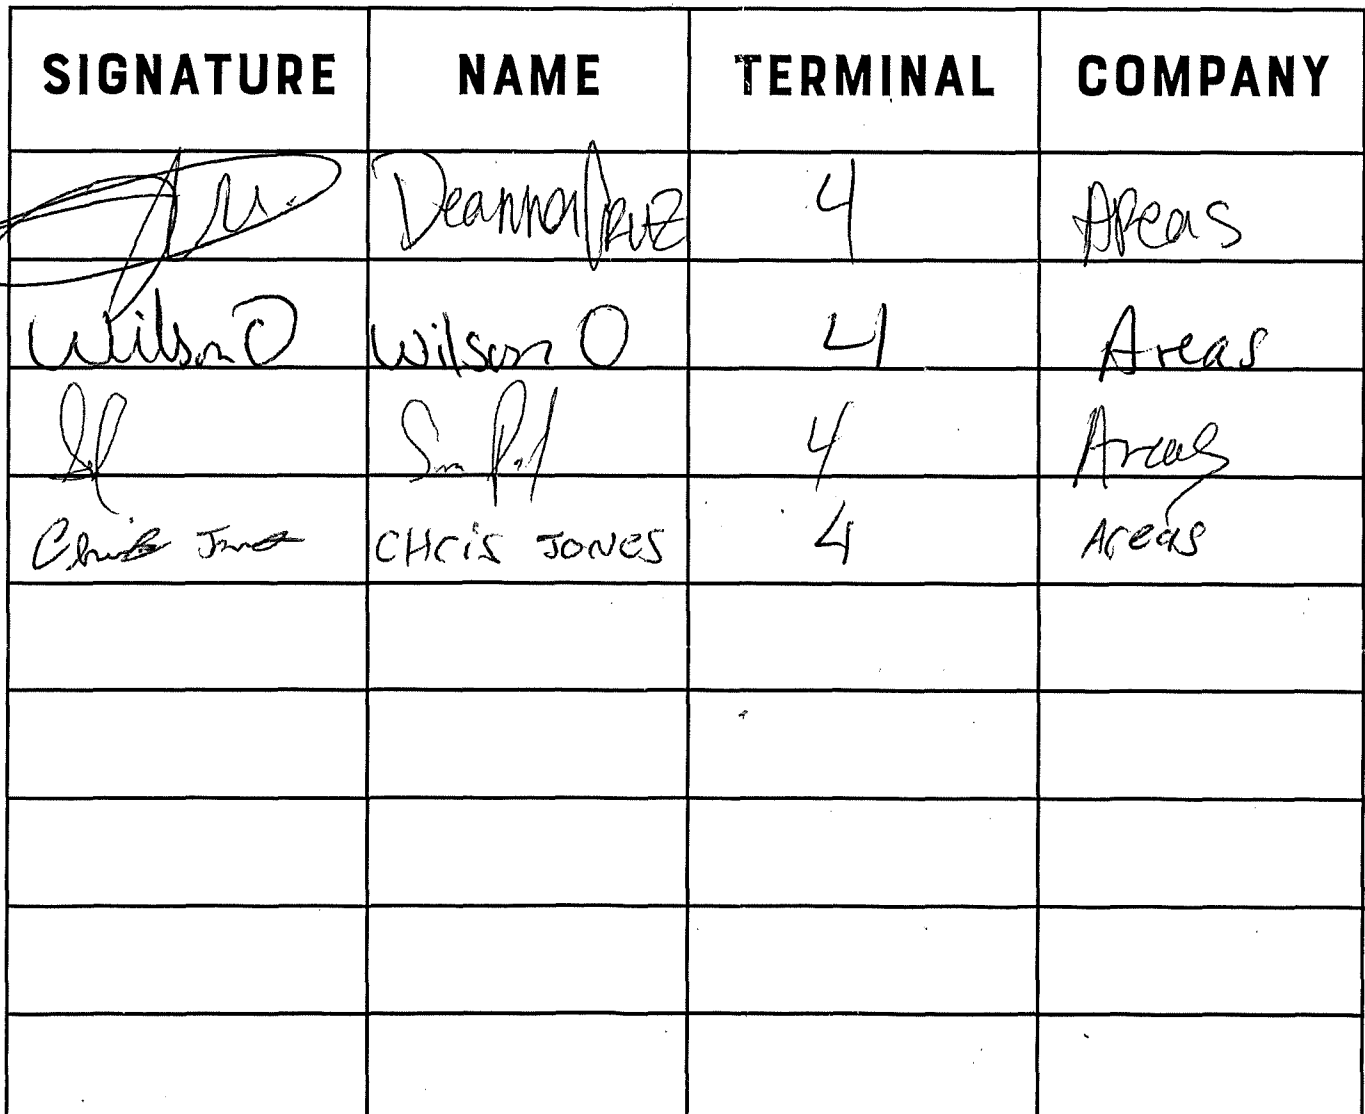 SIGNATURE NAME TERMINAL COMPANY
Deanna Cruz 4 Areas
Wilson O Wilson O 4 Areas
4 Areas
Chris Jones CHris JONES 4 Areas